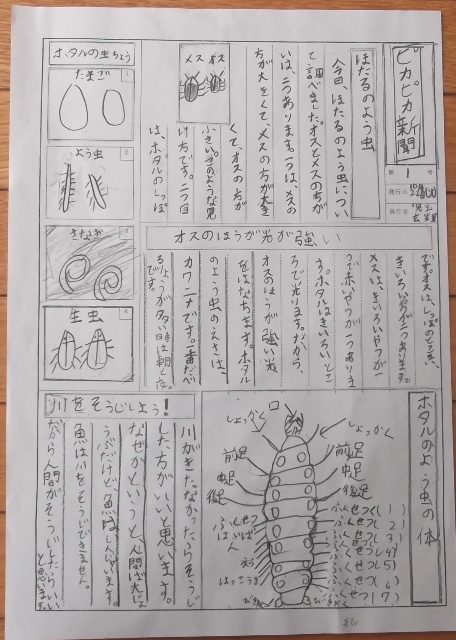 ピカピカ新聞
第 1 号
発行日
発行者
ほたるのよう虫
今回、ほたるのよう虫につい
て調べました。オスとメスのちが
いは、二つあります。一つは、メスの
方が大きくて、メスの方が大き
くて、オスの方が
小さい
け方です。二つ目
は、ホタルのしっぽ
メス オス
ホタルの生ちょう
たまご
1
よう虫
2
さなぎ
3
生虫
4
オスのほうが光が強い
です。オスは、しっぽのところに、
きいろい
メスは、きいろいやつが一
つで
す。ホタルはきいろいとこ
ろで光ります。だから、
オスのほうが強い光
をはなちます。ホタル
のよう虫のえさは、
カワニナです。一番たべ
るりょうが多い時は朝と夜
です。
ホタルのよう虫の体
しょっかく
しょっかく
前足
中足
後足
前足
中足
後足
ふくせつ(1)
ふくせつ(2)
ふくせつ(3)
ふくせつ(4)
ふくせつ(5)
ふくせつ(6)
ふくせつ(7)
はっこうき
川をそうじしよう!
川がきたなかったらそうじ
した方がいいと思います。
なぜかというと、人間は大じょ
うぶだけど、魚はしんじゃいます。
魚は川をそうじできません。
だから人間がそうじしたらいい
と思います。